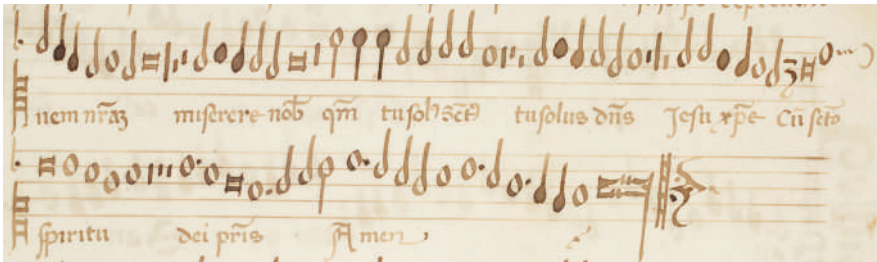 nem nr̄aꝫ miserere nob̄ qm̄ tu sol9 sct9 tu solus dn̄s Jesu xp̄e Cū scto
spiritu dei pr̄is Amen